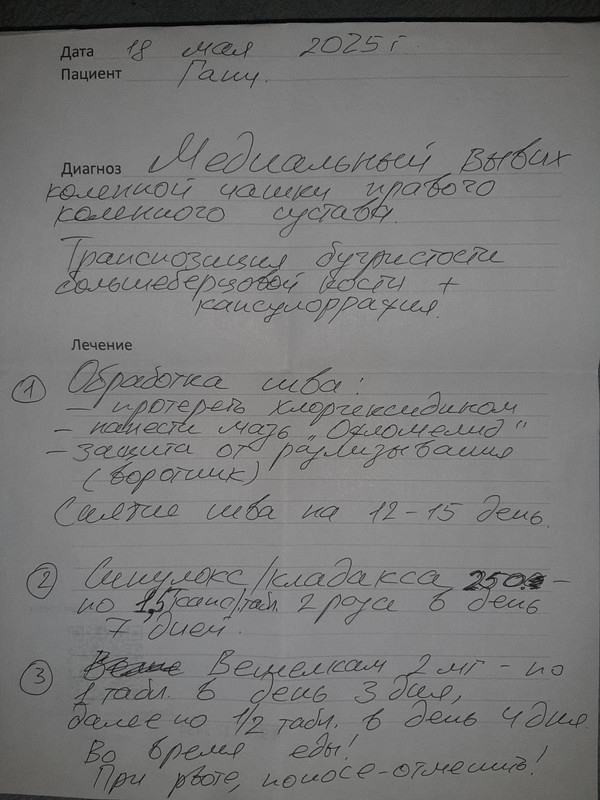 Дата 18 мая 2025 г.
Пациент Ганц.
Диагноз Медиальный вывих
коленной чашки правого
коленного сустава.
Транспозиция бугристости
большеберцовой кости +
капсулоррафия.
Лечение
① Обработка шва:
– протереть хлоргексидином
– нанести мазь „Офломелид"
– защита от разлизывания
(воротник)
Снятие шва на 12–15 день.
② Синулокс/кладакса 250 –
по 1,5 /табл. 2 раза в день
7 дней.
③ Вешелкам 2 мг – по
1 табл. в день 3 дня,
далее по 1/2 табл. в день 4 дня.
Во время еды!
При рвоте, поносе – отменить!